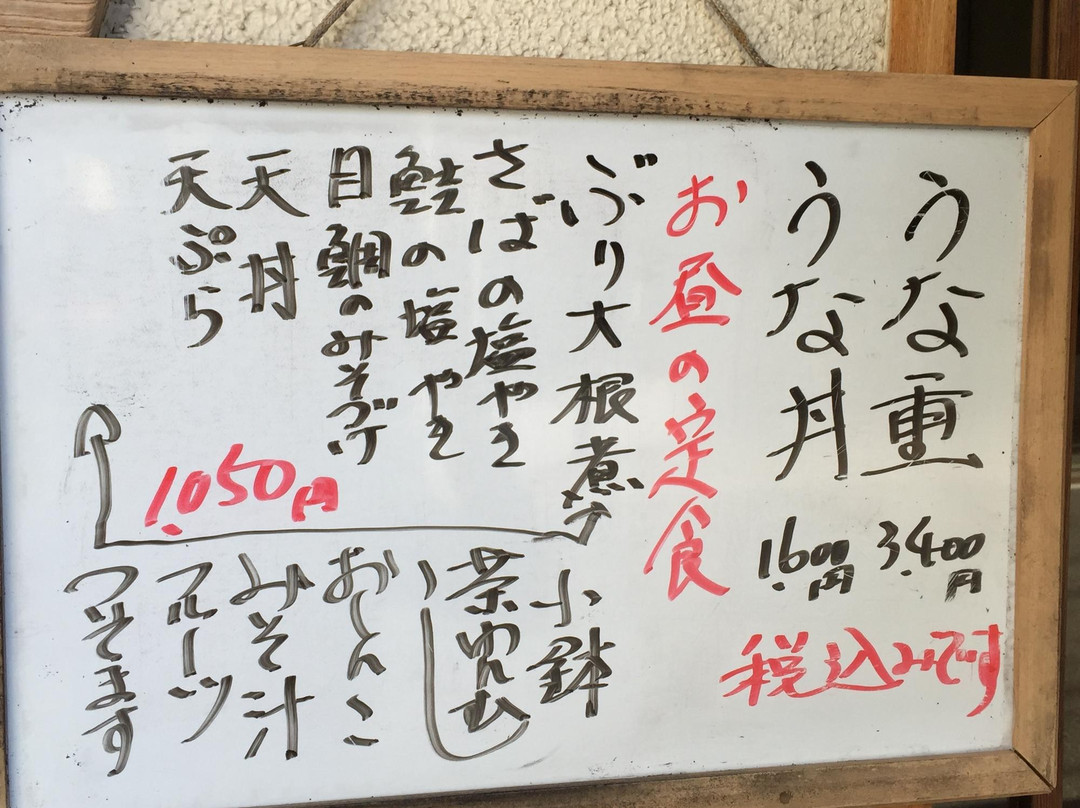 うな重 3,400円
うな丼 1,600円
税込みです
お昼の定食
ぶり大根煮ケ
さばの塩やき
鮭の塩やき
目鯛のみそづケ
天丼
天ぷら
1,050円
小鉢
茶わんむし
おしんこ
みそ汁
フルーツ
つきます